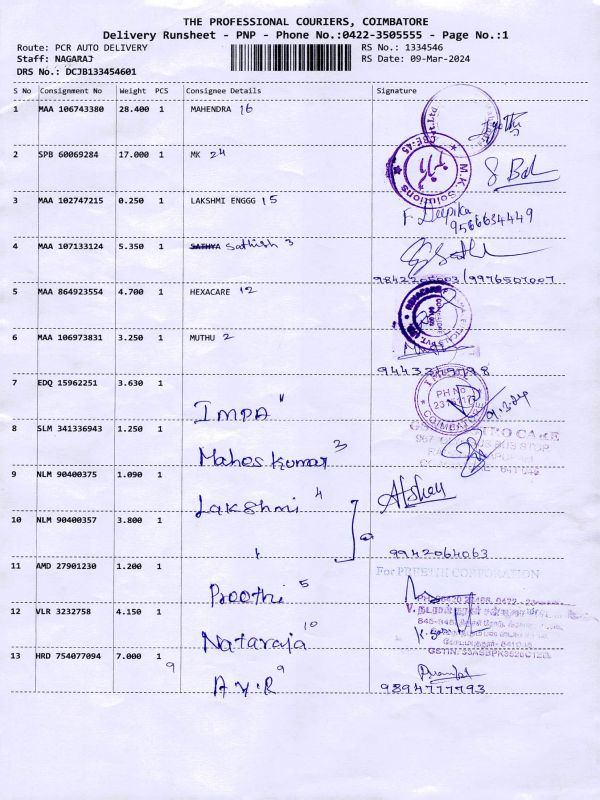 THE PROFESSIONAL COURIERS, COIMBATORE
Delivery Runsheet - PNP - Phone No.:0422-3505555 - Page No.:1
Route: PCR AUTO DELIVERY
RS No.: 1334546
Staff: NAGARAJ
RS Date: 09-Mar-2024
DRS No.: DCJB133454601
S No Consignment No Weight PCS Consignee Details Signature
1 MAA 106743380 28.400 1 MAHENDRA 16 Jyothi
2 SPB 60069284 17.000 1 MK 24
CBE-45 M.K. Solutions
3 MAA 102747215 0.250 1 LAKSHMI ENGGG 15 F. Deepika
9566634449
4 MAA 107133124 5.350 1 SATHYA Sathish 3
9842205003/9976507007
5 MAA 864923554 4.700 1 HEXACARE 12
HEXACARE
6 MAA 106973831 3.250 1 MUTHU 2
7 EDQ 15962251 3.630 1
IMPA
PH No
COIMBATORE
8 SLM 341336943 1.250 1
Mahes Kumar 3
9 NLM 90400375 1.090 1
Lakshmi 4
Afshay
10 NLM 90400357 3.800 1
9942064063
11 AMD 27901230 1.200 1
Preethi 5
For PREETHI CORPORATION
12 VLR 3232758 4.150 1
Nataraja 10
13 HRD 754077094 7.000 1
9
A.V.R 9
9894777793